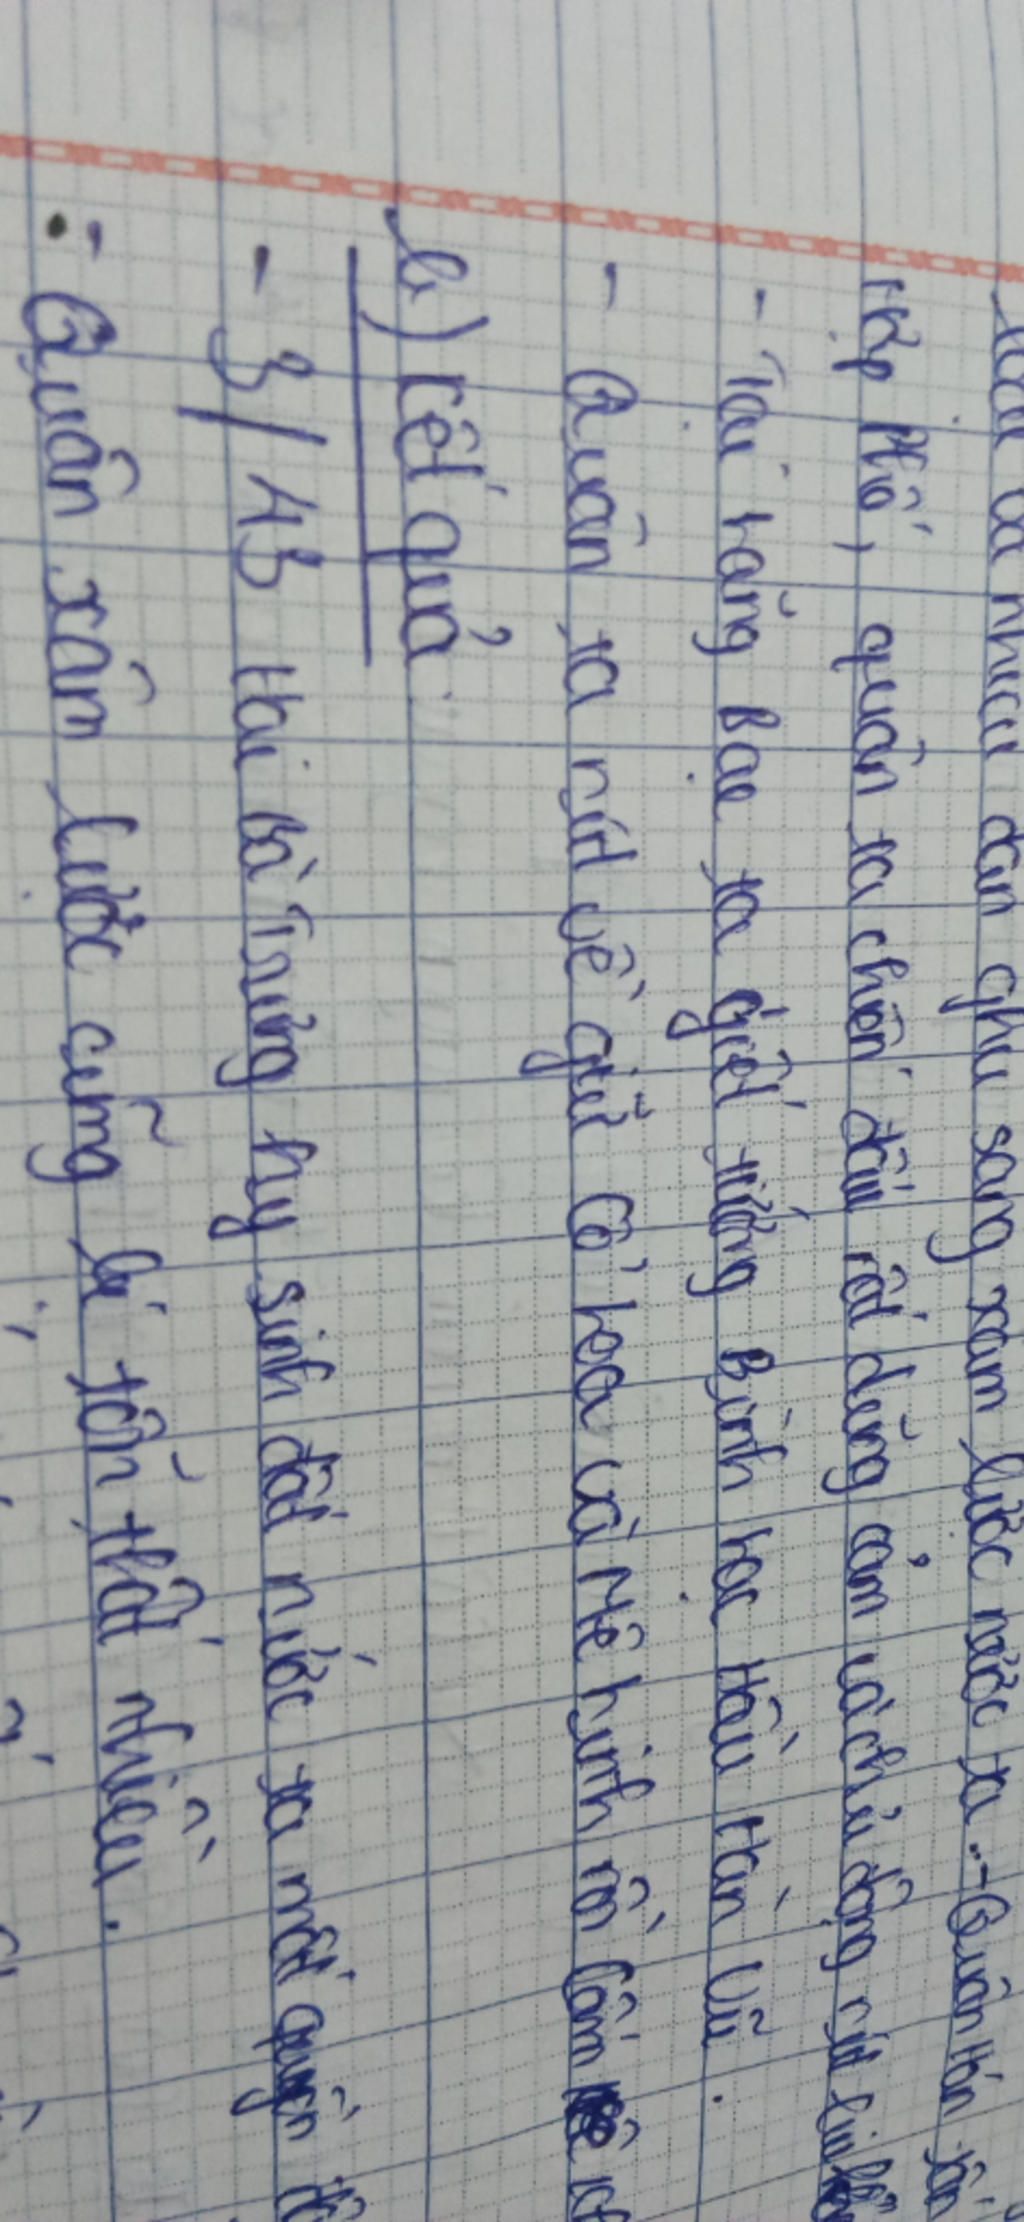 và nhiều dân phu sang xâm lược nước ta. - Quân Hán tấn
Hợp Phố, quân ta chiến đấu rất dũng cảm và chủ động rút lui
- Tại Lãng Bạc ta giết tướng Bình Lạc Hầu Hàn Vũ.
- Quân ta rút về giữ Cổ Loa và Mê Linh rồi Cấm Khê
b) Kết quả
- 3/43 Hai Bà Trưng hy sinh đất nước ta mất quyền
- Quân xâm lược cũng bị tổn thất nhiều.